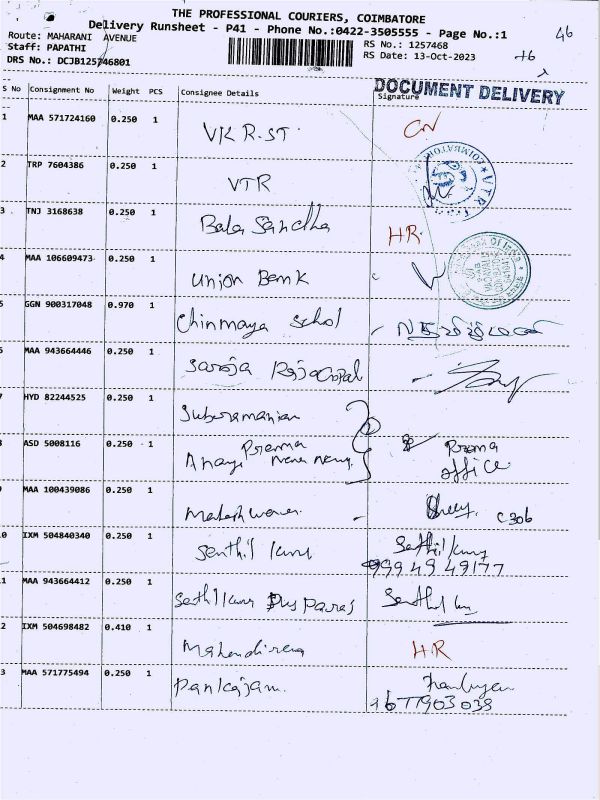 THE PROFESSIONAL COURIERS, COIMBATORE
Delivery Runsheet - P41 - Phone No.:0422-3505555 - Page No.:1
46
Route: MAHARANI AVENUE
Staff: PAPATHI
RS No.: 1257468
DRS No.: DCJB125746801
RS Date: 13-Oct-2023
+6
DOCUMENT DELIVERY
S No Consignment No Weight PCS Consignee Details Signature
1 MAA 571724160 0.250 1 VK R.ST.
2 TRP 7604386 0.250 1 VTR
3 TNJ 3168638 0.250 1 Bala Sandha HR.
4 MAA 106609473 0.250 1 Union Bank
5 GGN 900317048 0.970 1 Chinmaya School
6 MAA 943664446 0.250 1 Saroja Rajagopal
7 HYD 82244525 0.250 1 Subramanian
8 ASD 5008116 0.250 1 Prema Prema office
9 MAA 100439086 0.250 1 Maheshwaran C306
0 IXM 504840340 0.250 1 Senthil Kumar Senthil Kumar
99949 49177
1 MAA 943664412 0.250 1 Senthil Kumar
2 IXM 504698482 0.410 1 Mahendiren HR
3 MAA 571775494 0.250 1 Pankajam.